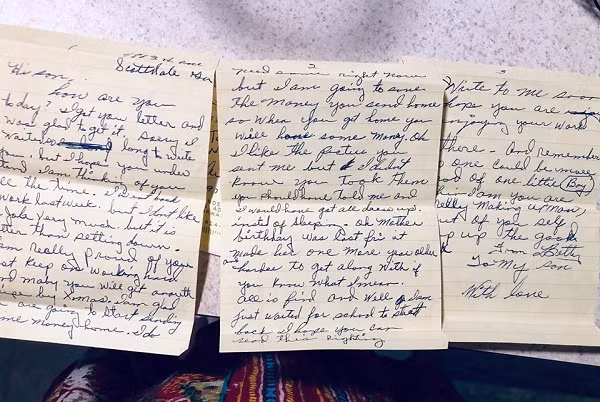 1
Scottdale
Hi son,
how are you
today? I get you letter and
was glad to get it. Sorry I
long to write
you. but I hope you under
stand. I am thinking of you
all the time. I went back
work last week. but I don't like
Job very much but it is
better than setting down.
am really proud of you
Just keep on working hard
and maby you will get another
stripe by Xmas. I am glad
are going to start sending
some money home. I do
2
need some right now
but I am going to save
the money you send home
so when you get home you
will have some money. Oh
I like the posture you
sent me but I didn't
know you took them
you should have told me and
I would have got all dress up.
insted of sleeping. oh Mother
birthday was last fri. it
make her one more year older
and harder to get along with if
you know what I mean.
all is find and well
just waited for school to start
back. I hope you can
read this Righting
3
Write to me soon
hope you are
enjoying your work
there. And remember
no one could be more
proud of one little Boy
I am you are
really Making a Man
out of you self
up the good
From Betty
To My Son
With love